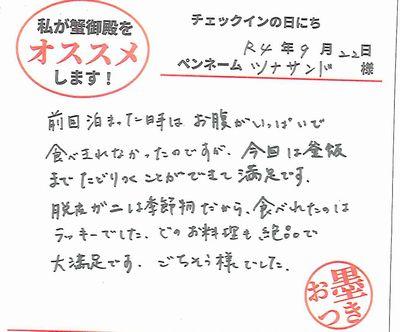 私が蟹御殿を
オススメ
します！
チェックインの日にち
R4年9月22日
ペンネーム ツナサンド 様
前回泊まった時は お腹がいっぱいで
食べきれなかったのですが、今回は釜飯
までたどりつくことができて満足です。
脱皮ガニは季節物だから、食べれたのは
ラッキーでした。どのお料理も絶品で
大満足です。ごちそう様でした。
お墨つき